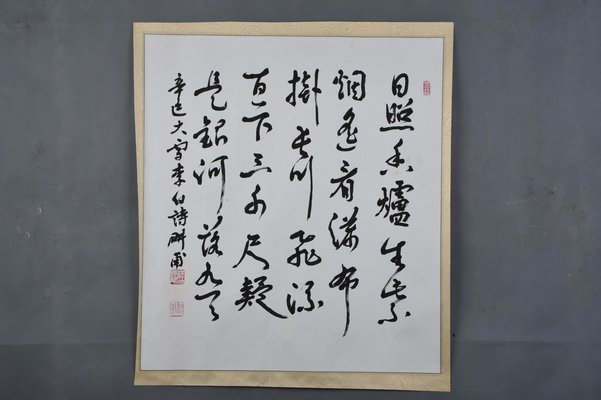 日照香爐生紫
烟遙看瀑布
掛長川飛流
直下三千尺疑
是銀河落九天
辛巳大雪李白詩耕甫